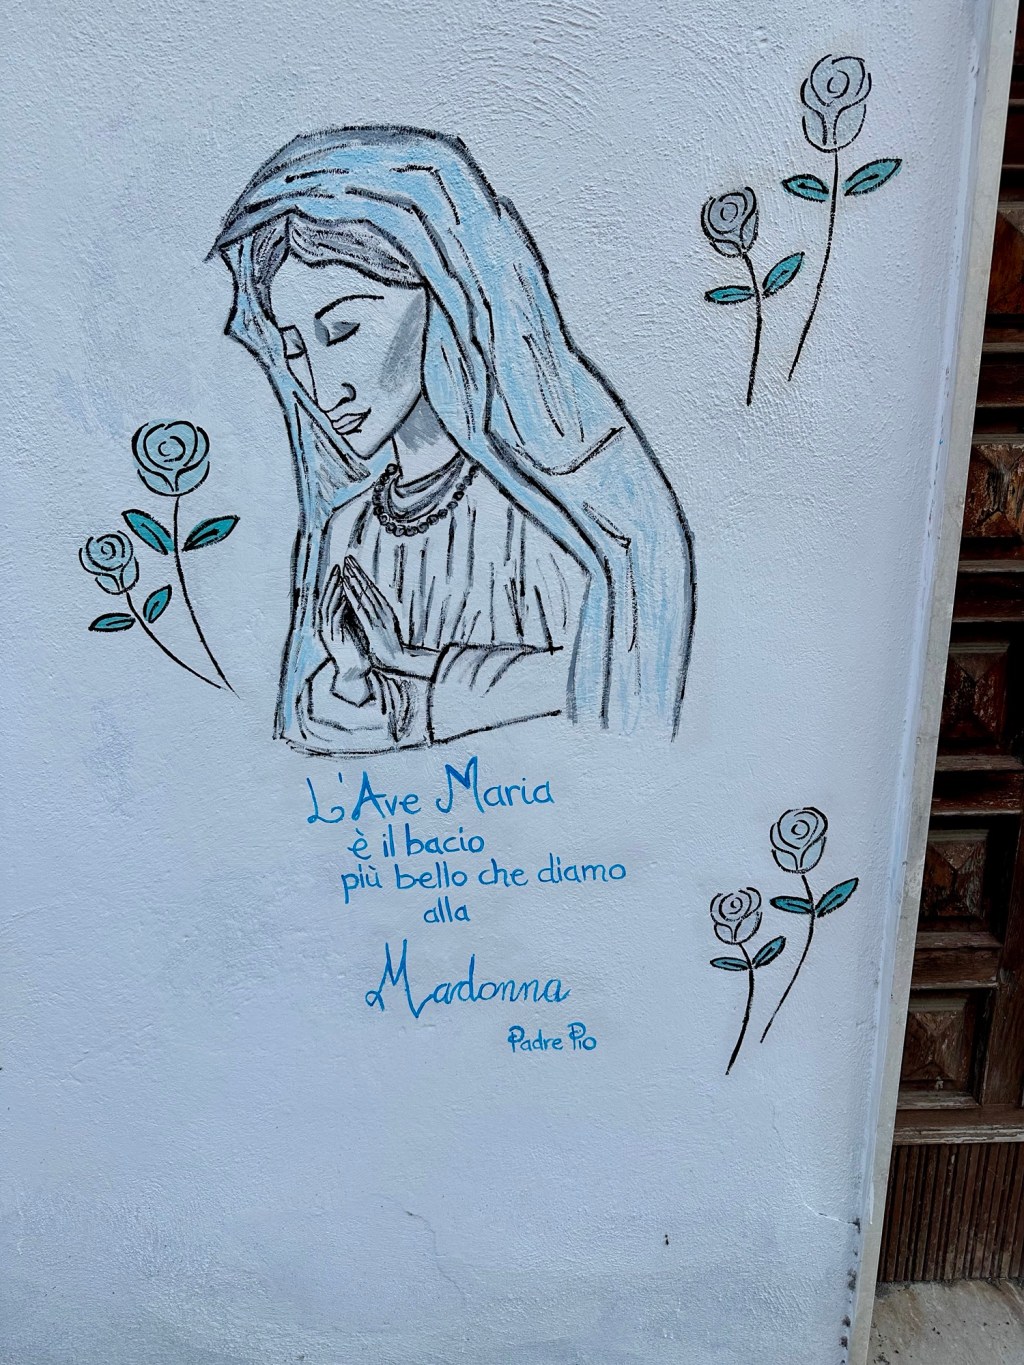 L'Ave Maria
è il bacio
più bello che diamo
alla
Madonna
Padre Pio